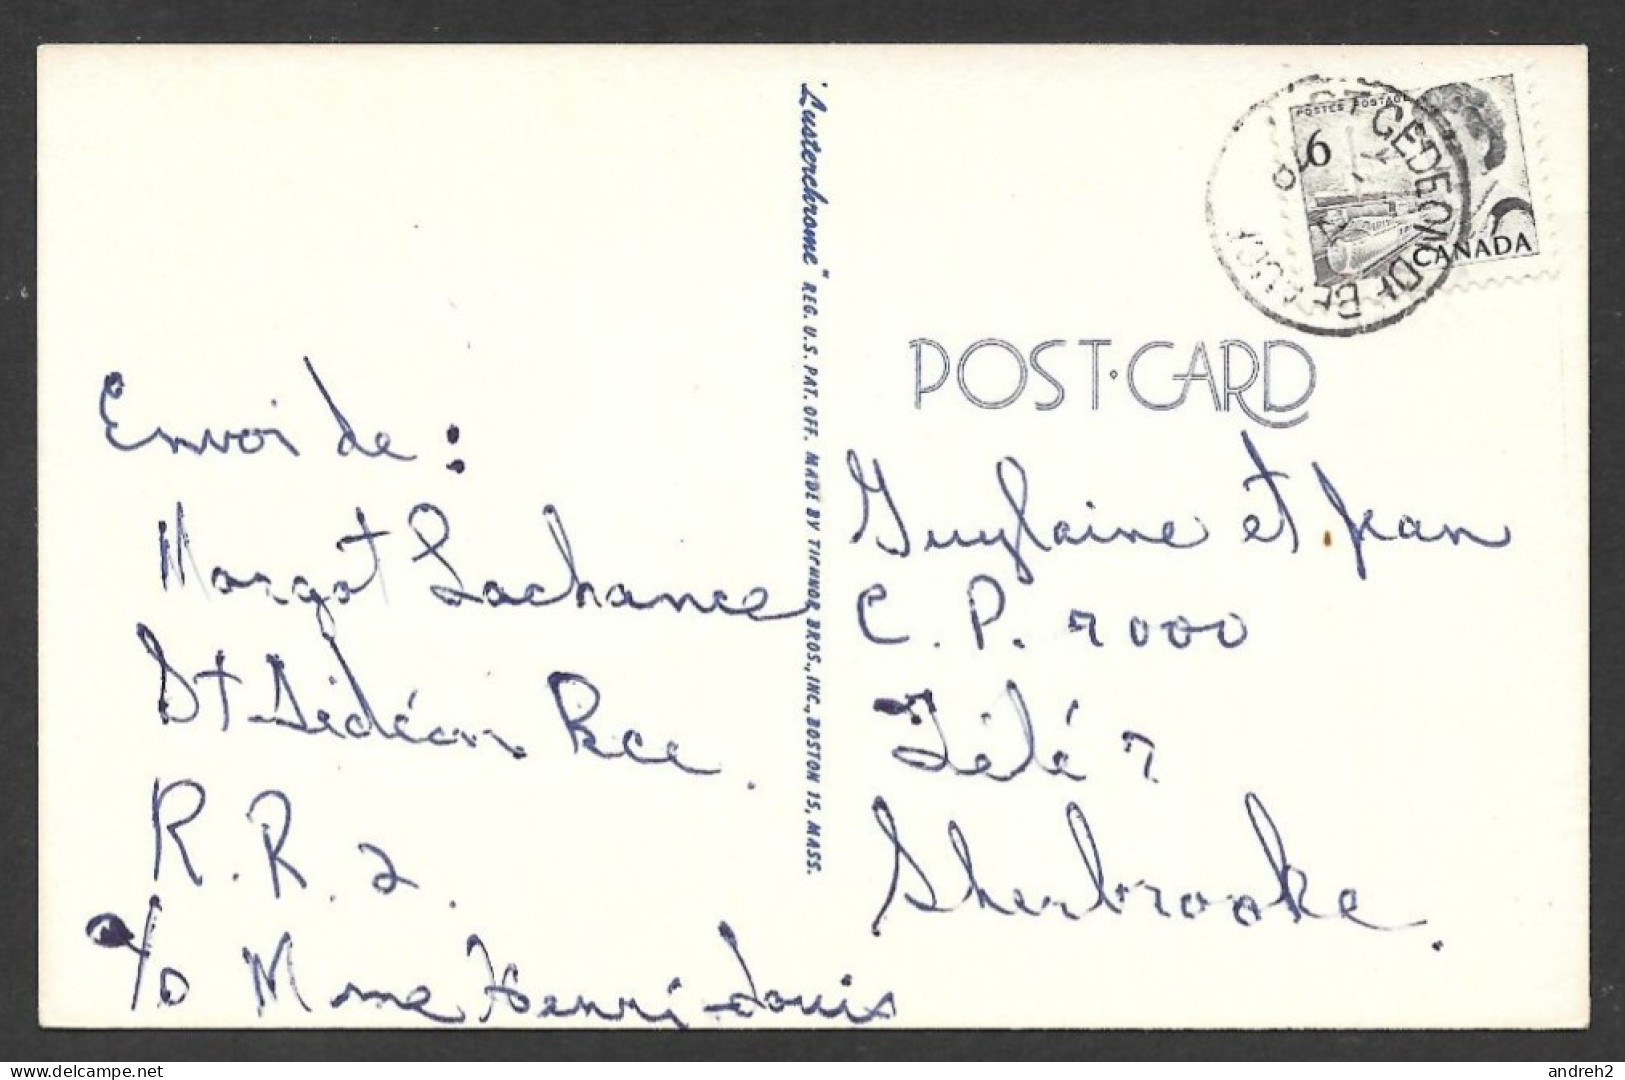 Envoi de :
Margot Lachance
St-Gédéon Bce.
R.R. 2.
c/o Mme Henri-Louis
"Lusterchrome" REG. U.S. PAT. OFF. MADE BY TICHNOR BROS., INC., BOSTON 15, MASS.
POSTES POSTAGE
6
CANADA
ST GEDEON DE BEAUCE
POST·CARD
Guylaine et Jean
C.P. 7000
Télé 7
Sherbrooke.
delcampe.net
andreh2